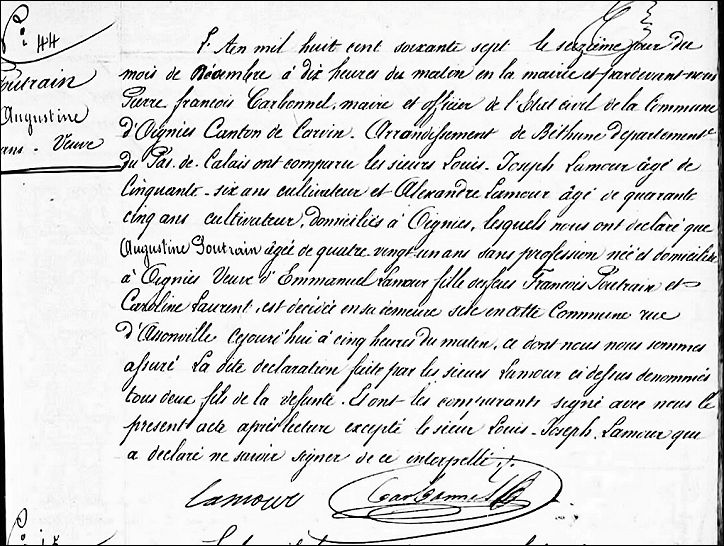 N° 44
Poutrain
Augustine
ans - Veuve
L'An mil huit cent soixante sept le seizième jour du
mois de Décembre à dix heures du matin en la mairie et pardevant nous
Pierre françois Carbonnel, maire et officier de l'Etat civil de la Commune
d'Oignies Canton de Carvin - Arrondissement de Béthune département
du Pas-de-Calais ont comparu les sieurs Louis-Joseph Lamour âgé de
Cinquante-six ans cultivateur et Alexandre Lamour âgé de quarante
cinq ans cultivateur, domiciliés à Oignies, lesquels nous ont declaré que
Augustine Poutrain âgée de quatre vingt un ans sans profession née et domiciliée
à Oignies Veuve d'Emmanuel Lamour fille de feus François Poutrain et
Caroline Laurent, est décédée en sa demeure sise en cette Commune rue
d'Assonville cejourd'hui à cinq heures du matin, ce dont nous nous sommes
assuré La dite declaration faite par les sieurs Lamour ci dessus denommés
tous deux fils de la defunte. Et ont les comparants signé avec nous le
present acte après lecture excepté le sieur Louis-Joseph Lamour que
a déclaré ne savoir signer de ce interpellé ./.
Lamour Carbonnel